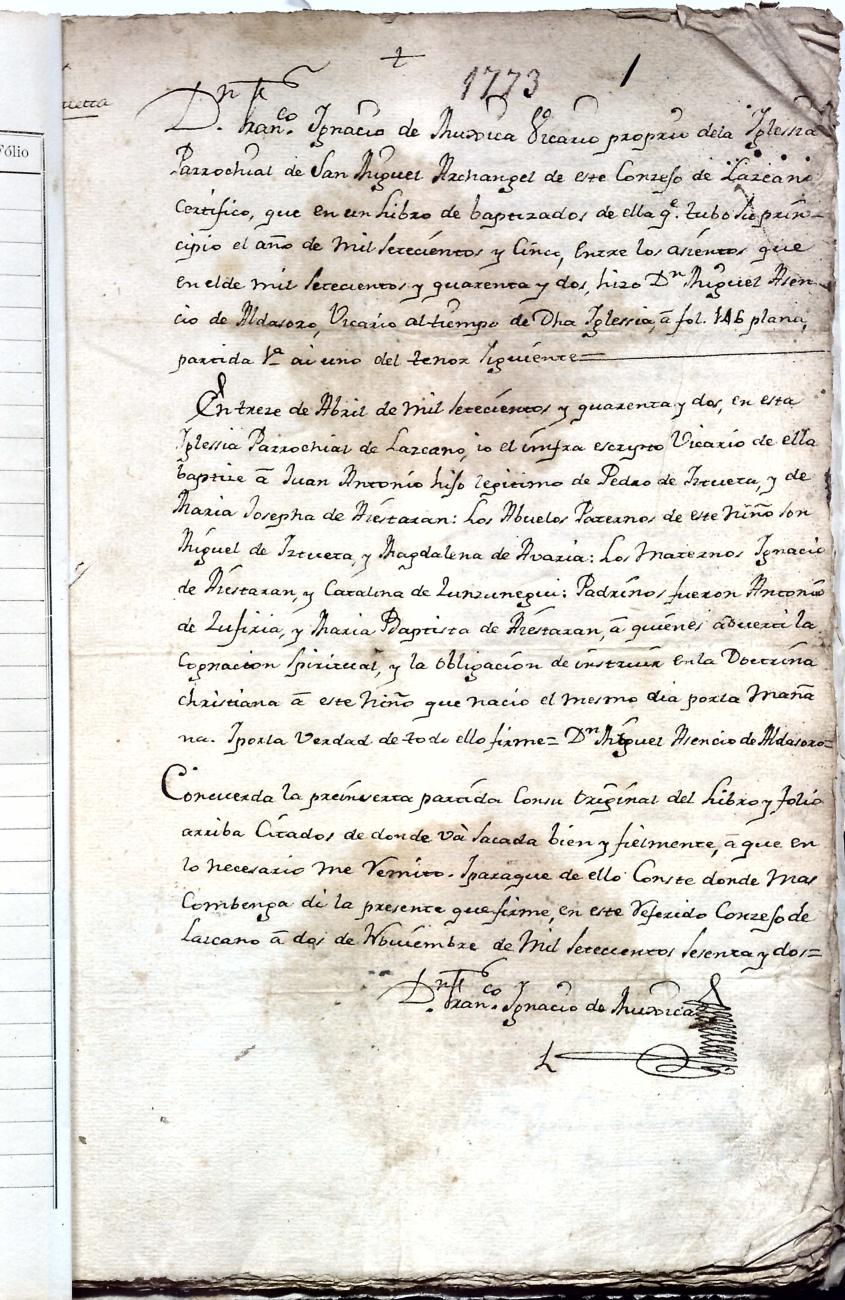 ✝
1773 1
Fólio
Dn. Franco. Ignacio de Muxica Vicario proprio dela Iglessia
Parrochial de San Miguel Archangel de este Conzejo de Lazcano
Certifico, que en un Libro de baptizados de ella qe. tubo su prin-
cipio el año de mil setecientos y Cinco, entre los asientos que
en el de mil setecientos y quarenta y dos, hizo Dn Miguel Asen-
cio de Aldasoro, Vicario al tiempo de Dha Iglessia, a fol. 146 plana,
partida 1a ai uno del tenor siguiente=
En treze de Abril de mil setecientos y quarenta y dos, en esta
Iglessia Parrochial de Lazcano, io el infra escripto Vicario de ella
baptize a Juan Antonio hijo legitimo de Pedro de Iztueta, y de
Maria Josepha de Aiestaran: Los Abuelos Paternos de este Niño son
Miguel de Iztueta, y Magdalena de Avaria: Los Maternos Ignacio
de Aiestaran, y Catalina de Zunzunegui: Padrinos fueron Antonio
de Lufiria, y Maria Baptista de Aiestaran, a quienes adverti la
Cognacion spiritual, y la obligacion de instruir en la Doctrina
christiana a este Niño que nacio el mesmo dia por la maña
na. I por la verdad de todo ello firme= Dn Miguel Asencio de Aldasoro=
Concuerda la preinserta partida Con su original del Libro y folio
arriba Citados de donde va sacada bien y fielmente, a que en
lo necesario me Remito. I para que de ello Conste donde mas
Combenga di la presente que firme, en este Referido Conzejo de
Lazcano a dos de Noviembre de Mil setecientos sesenta y dos=
Dn. Franco. Ignacio de Muxica